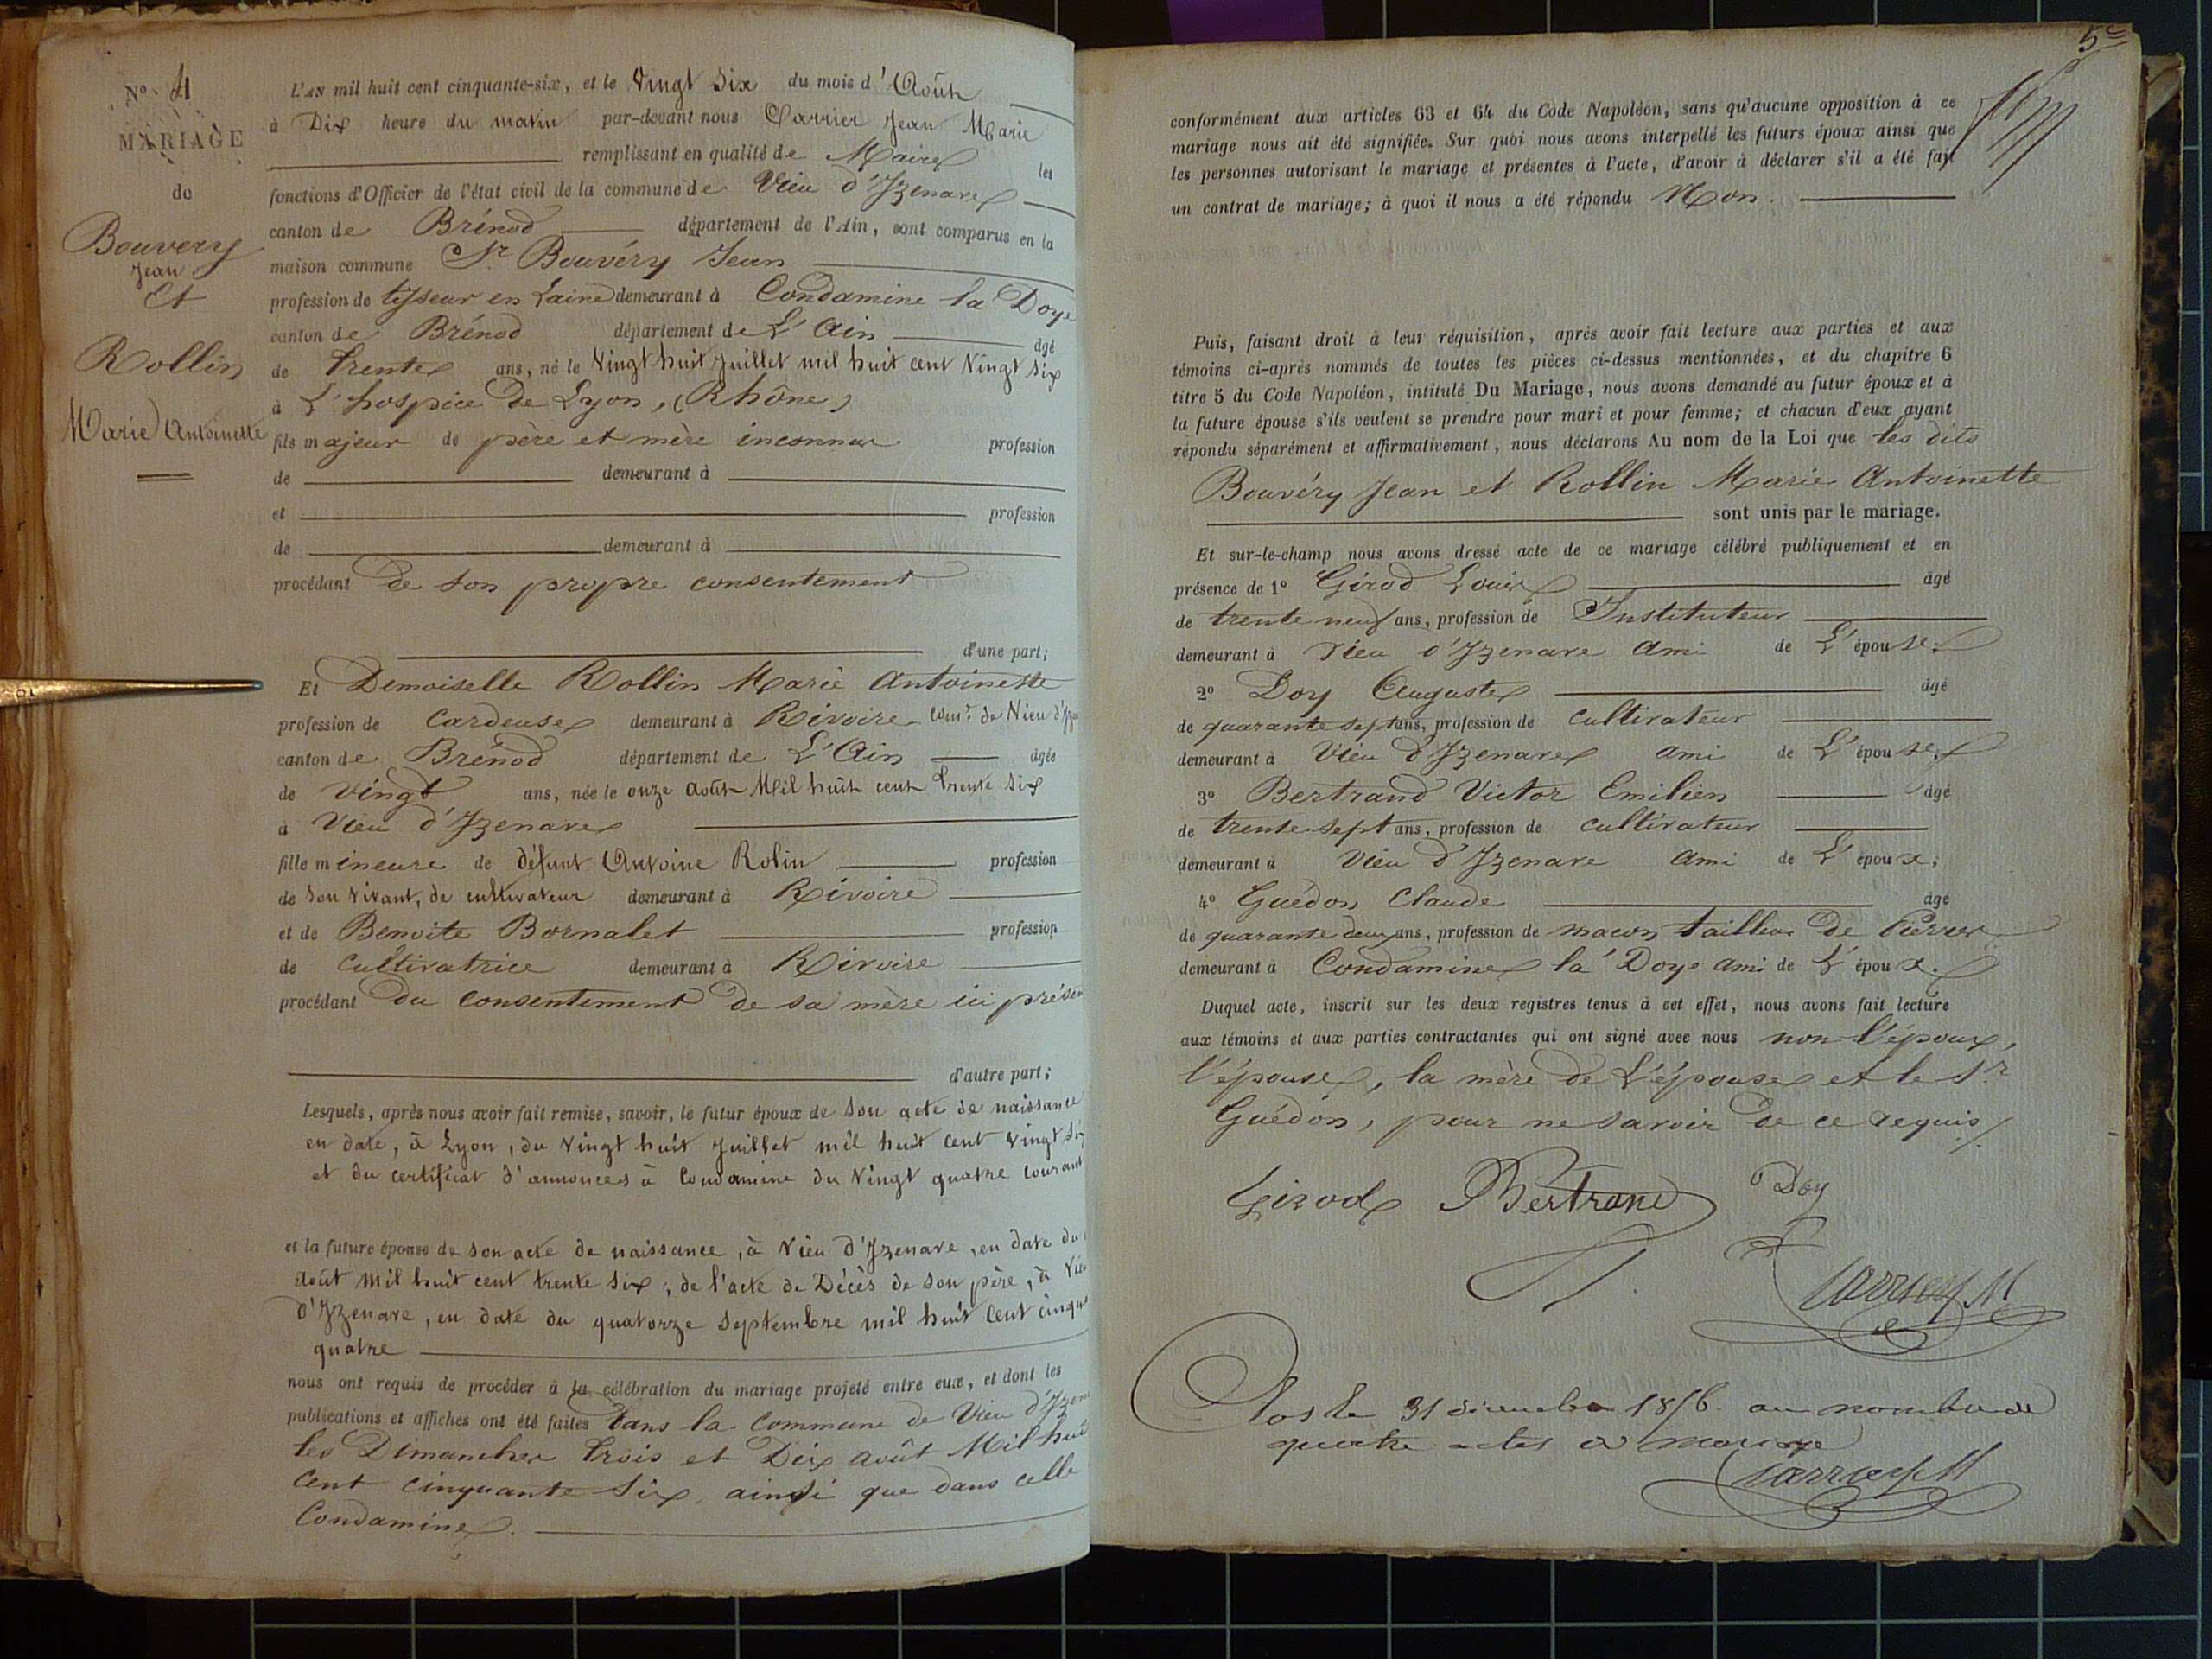 N° 4
MARIAGE
de
Bouvery
Jean
Et
Rollin
Marie Antoinette
L'AN mil huit cent cinquante-six, et le Vingt Six du mois d'Août
à Dix heure du matin par-devant nous Carrier Jean Marie
remplissant en qualité de Maire les
fonctions d'Officier de l'état civil de la commune de Vieu d'Izenave
canton de Brénod département de l'Ain, sont comparus en la
maison commune Sr Bouvéry Jean
profession de tisseur en Laine demeurant à Condamine la Doye
canton de Brénod département de L'Ain âgé
de trente ans, né le Vingt huit Juillet mil huit cent Vingt Six
à L'hospice de Lyon, (Rhône)
fils majeur de père et mère inconnus. profession
de demeurant à
et profession
de demeurant à
procédant de son propre consentement
d'une part;
Et Demoiselle Rollin Marie Antoinette
profession de Cardeuse demeurant à Rivoire comne de Vieu d'Ize
canton de Brénod département de L'Ain âgée
de Vingt ans, née le onze août Mil huit cent trente Six
à Vieu d'Izenave
fille mineure de défunt Antoine Rolin profession
de Son vivant, de cultivateur demeurant à Rivoire
et de Benoite Bornalet profession
de Cultivatrice demeurant à Rivoire
procédant du consentement de sa mère ici présen
d'autre part;
Lesquels, après nous avoir fait remise, savoir, le futur époux de Son acte de naissance
en date, à Lyon, du Vingt huit Juillet mil huit cent vingt six
et du certificat d'annonces à Condamine du Vingt quatre courant
et la future épouse de son acte de naissance, à Vieu d'Izenave, en date du
août Mil huit cent trente Six; de l'acte de Décès de son père, à Vieu
d'Izenave, en date du quatorze Septembre mil huit Cent cinqua
quatre
nous ont requis de procéder à la célébration du mariage projeté entre eux, et dont les
publications et affiches ont été faites dans la Commune de Vieu d'Izena
les Dimanches trois et Dix août Mil huit
Cent cinquante Six, ainsi que dans celle
Condamine.
5e
conformément aux articles 63 et 64 du Code Napoléon, sans qu'aucune opposition à ce
mariage nous ait été signifiée. Sur quoi nous avons interpellé les futurs époux ainsi que
les personnes autorisant le mariage et présentes à l'acte, d'avoir à déclarer s'il a été fait
un contrat de mariage; à quoi il nous a été répondu Non.
Puis, faisant droit à leur réquisition, après avoir fait lecture aux parties et aux
témoins ci-après nommés de toutes les pièces ci-dessus mentionnées, et du chapitre 6
titre 5 du Code Napoléon, intitulé Du Mariage, nous avons demandé au futur époux et à
la future épouse s'ils veulent se prendre pour mari et pour femme; et chacun d'eux ayant
répondu séparément et affirmativement, nous déclarons Au nom de la Loi que les dits
Bouvéry Jean et Rollin Marie Antoinette
sont unis par le mariage.
Et sur-le-champ nous avons dressé acte de ce mariage célébré publiquement et en
présence de 1° Girod Louis âgé
de trente neuf ans, profession de Instituteur
demeurant à Vieu d'Izenave Ami de L'épouse;
2° Doy Auguste âgé
de quarante sept ans, profession de cultivateur
demeurant à Vieu d'Izenave ami de L'épouse;
3° Bertrand Victor Emilien âgé
de trente-sept ans, profession de cultivateur
demeurant à Vieu d'Izenave Ami de L'époux;
4° Guédon Claude âgé
de quarante deux ans, profession de macon tailleur de Pierres
demeurant à Condamine la Doye ami de L'époux.
Duquel acte, inscrit sur les deux registres tenus à cet effet, nous avons fait lecture
aux témoins et aux parties contractantes qui ont signé avec nous non l'époux,
l'épouse, la mère de L'épouse et le Sr
Guédon, pour ne savoir de ce requis
Girod Bertrand Doy
Carrier JM
Clos le 31 décembre 1856. au nombre de
quatre actes de mariage
Carrier JM